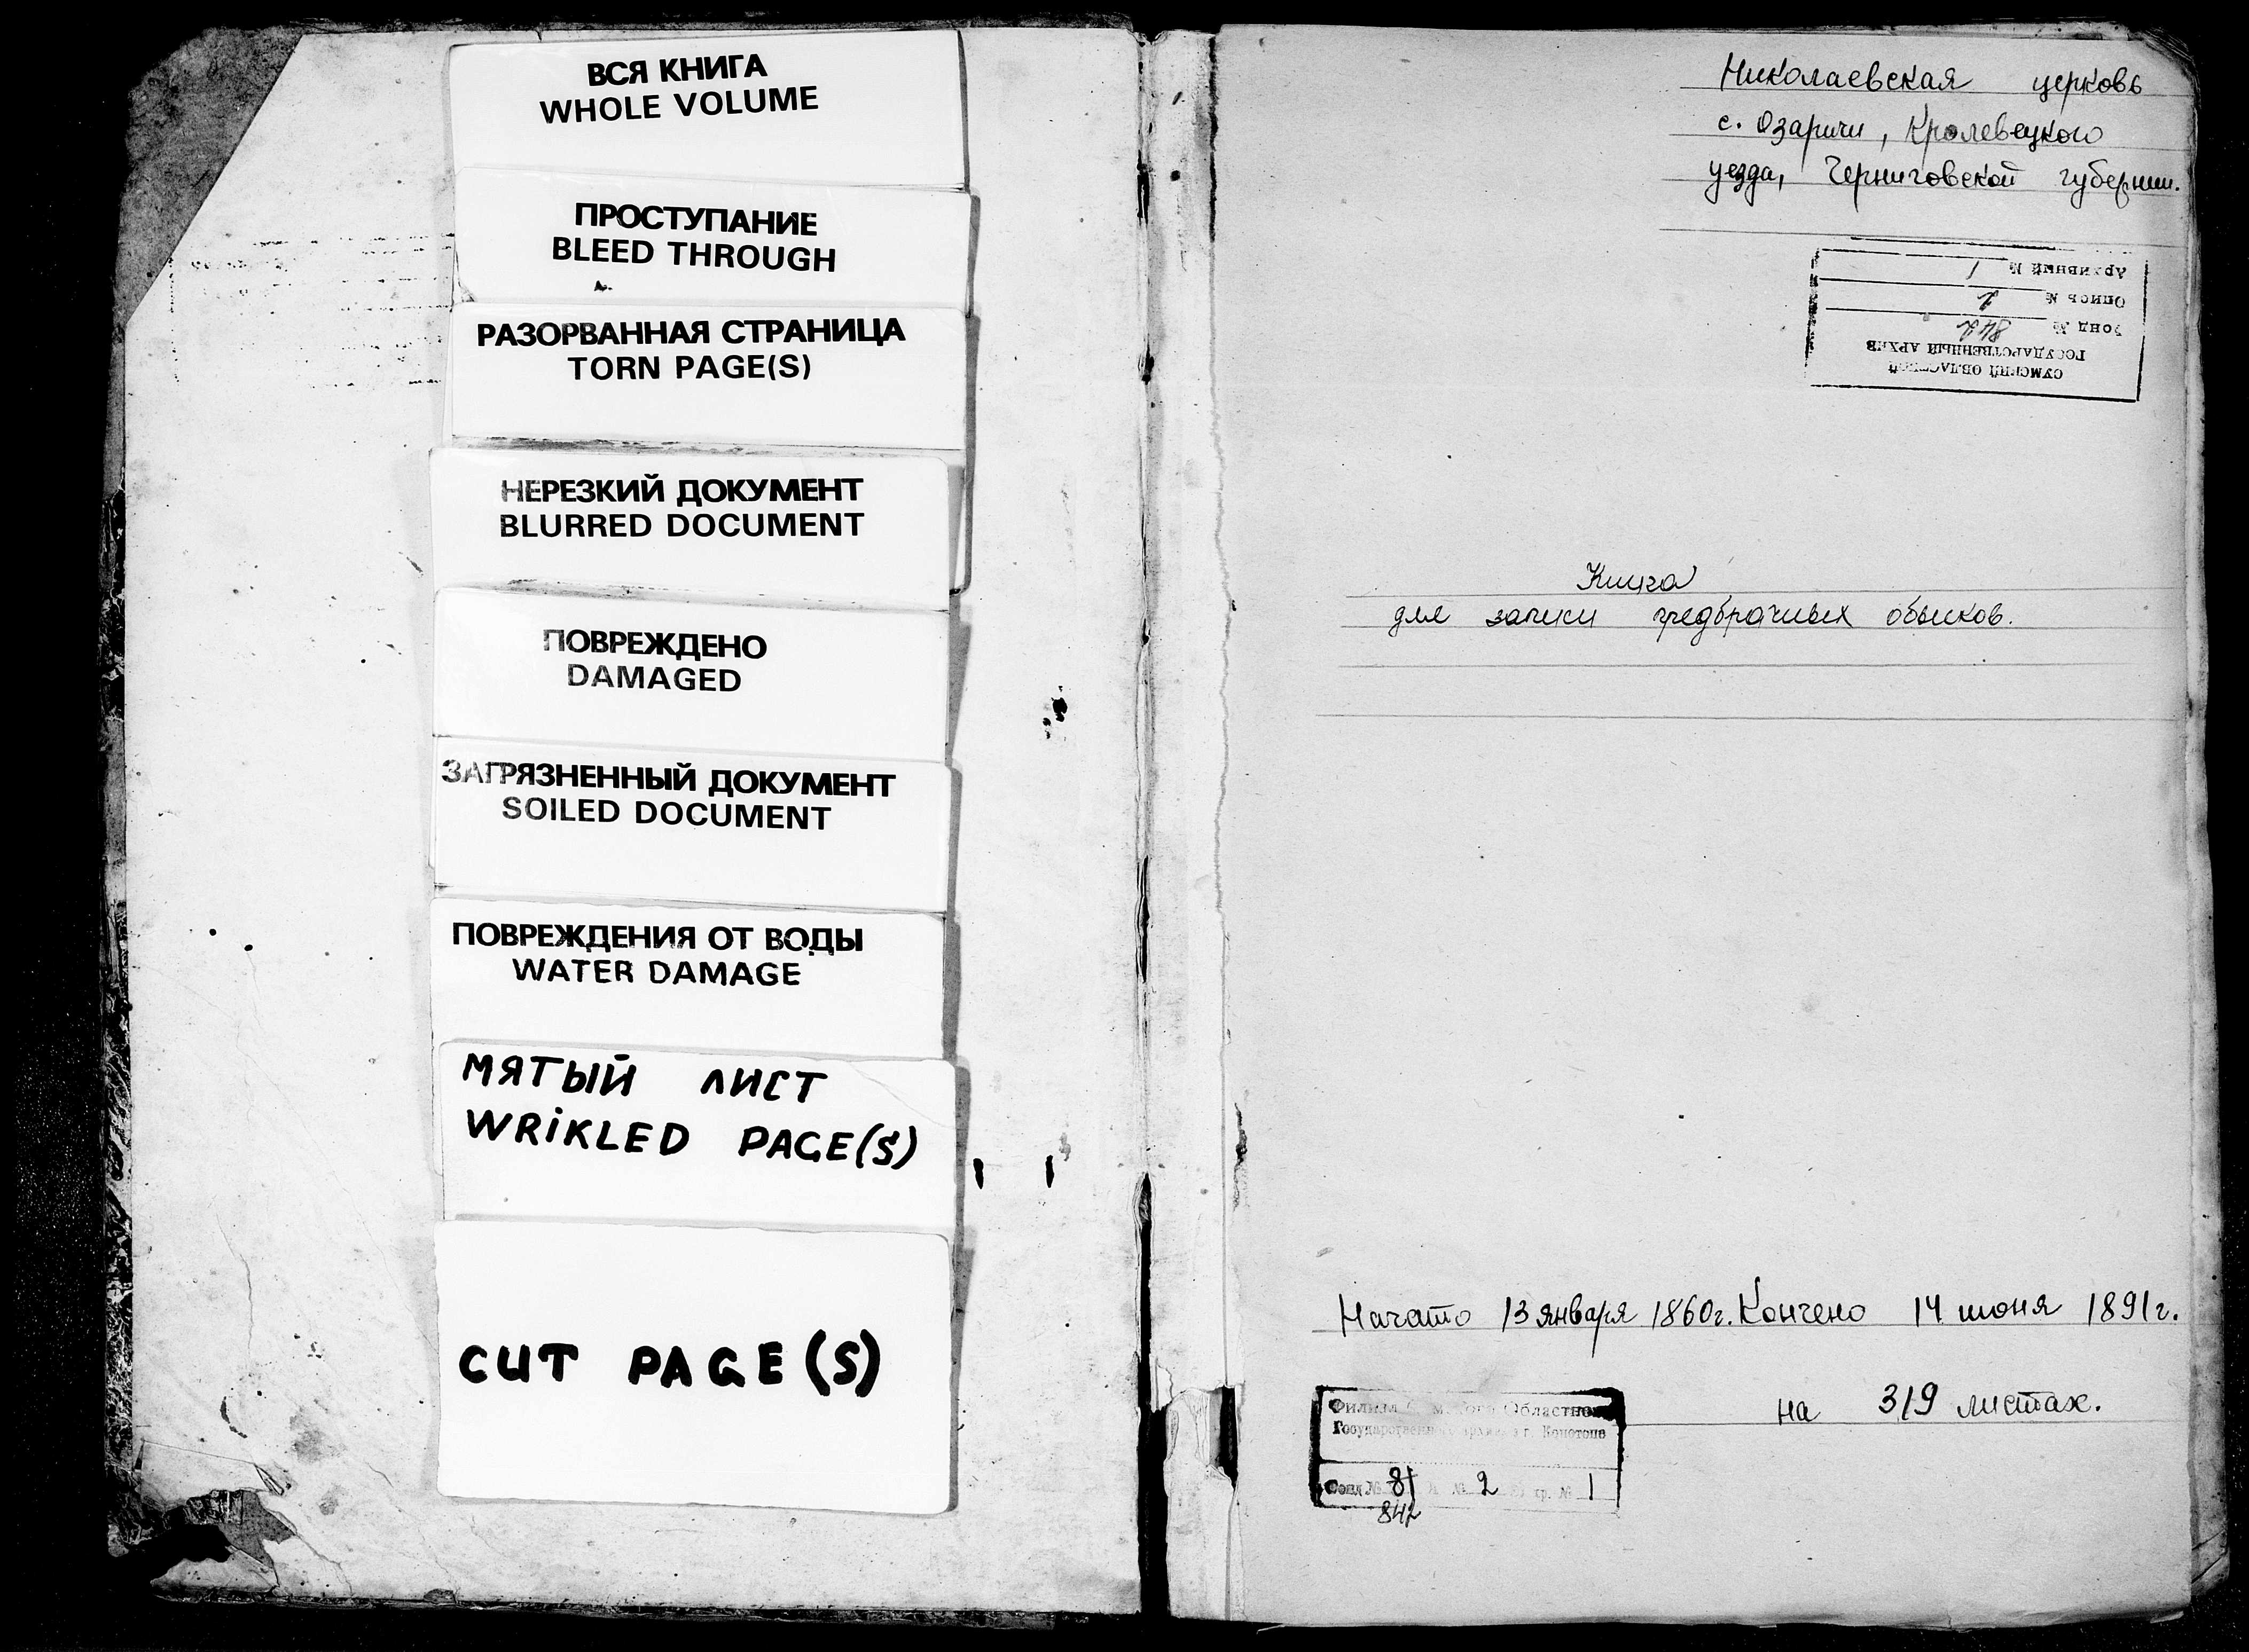 ВСЯ КНИГА
WHOLE VOLUME
ПРОСТУПАНИЕ
BLEED THROUGH
РАЗОРВАННАЯ СТРАНИЦА
TORN PAGE(S)
НЕРЕЗКИЙ ДОКУМЕНТ
BLURRED DOCUMENT
ПОВРЕЖДЕНО
DAMAGED
ЗАГРЯЗНЕННЫЙ ДОКУМЕНТ
SOILED DOCUMENT
ПОВРЕЖДЕНИЯ ОТ ВОДЫ
WATER DAMAGE
МЯТЫЙ ЛИСТ
WRIKLED PAGE(S)
CUT PAGE(S)
Николаевская церковь
с. Озаричи, Кролевецкого
уезда, Черниговской губернии.
СУМСКИЙ ОБЛАСТНОЙ
ГОСУДАРСТВЕННЫЙ АРХИВ
Фонд № 842
Опись № 2
Архивный № 1
Книга
для записи предбрачных обысков.
Начато 13 января 1860г. Кончено 14 июня 1891г.
на 319 листах.
Филиал Областного
Государственного архива в г. Конотопе
Фонд № 81 № 2 хр. № 1
842